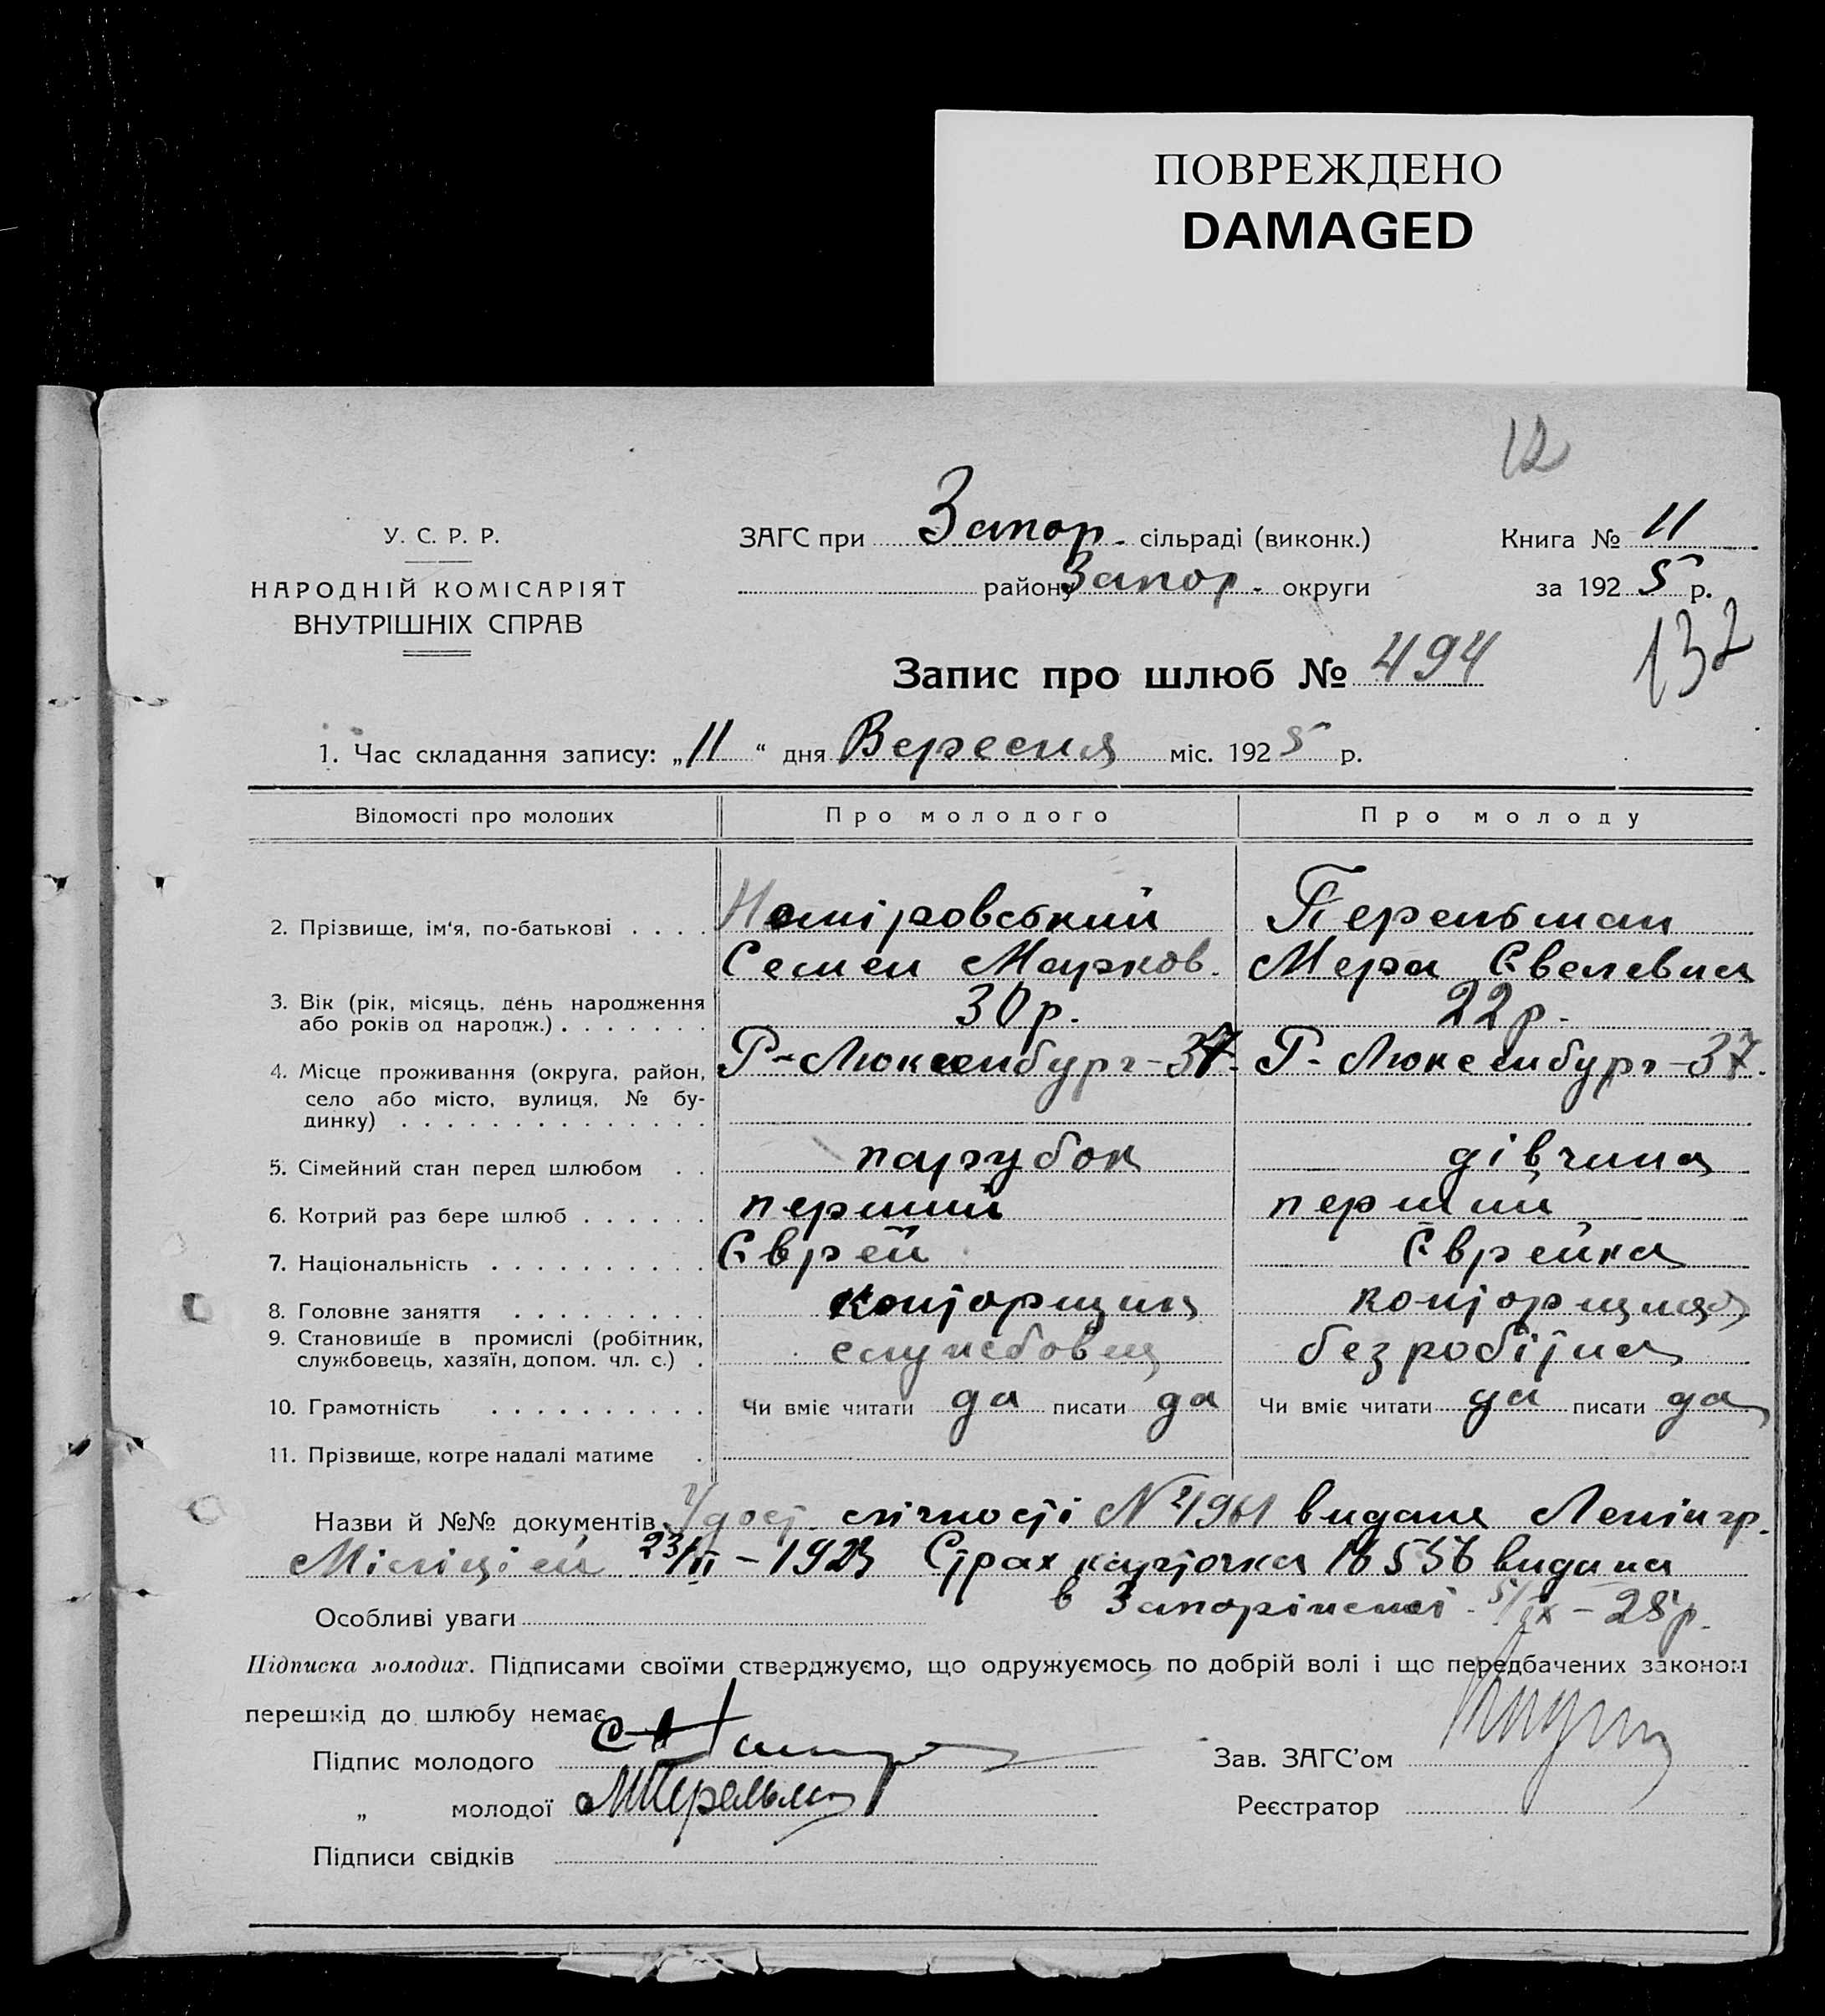 ПОВРЕЖДЕНО
DAMAGED
12
У. С. Р. Р.
НАРОДНІЙ КОМІСАРІЯТ
ВНУТРІШНІХ СПРАВ
ЗАГС при Запор. сільраді (виконк.)
району Запор. округи
Книга № 11
за 1925 р.
132
Запис про шлюб № 494
1. Час складання запису: „11“ дня Вересня міс. 1925 р.
Відомості про молодих Про молодого Про молоду
2. Прізвище, ім'я, по-батькові . . . . Неміровський Перельман
Семен Марков. Мера Євелевна
3. Вік (рік, місяць, день народження
або років од народж.) . . . . . . . 30 р. 22 р.
4. Місце проживання (округа, район, Р-Люксенбург-37. Р-Люксенбург-37.
село або місто, вулиця, № бу-
динку) . . . . . . . . . . . . . .
5. Сімейний стан перед шлюбом . . парубок дівчина
6. Котрий раз бере шлюб . . . . . . перший перший
7. Національність . . . . . . . . . . Єврей Єврейка
8. Головне заняття . . . . . . . . . конторщик конторщиця
9. Становище в промислі (робітник,
службовець, хазяїн, допом. чл. с.) . службовец безробітна
10. Грамотність . . . . . . . . . . Чи вміє читати да писати да Чи вміє читати да писати да
11. Прізвище, котре надалі матиме .
Назви й №№ документів Удост. лічності N 4961 видана Ленінгр.
Міліцією 23/II - 1923 Страх карточка 16536 видана
в Запоріжжі 5/IX - 25 р.
Особливі уваги
Підписка молодих. Підписами своїми стверджуємо, що одружуємось по добрій волі і що передбачених законом
перешкід до шлюбу немає
Підпис молодого
Зав. ЗАГС'ом
„ молодої МПерельман
Реєстратор
Підписи свідків